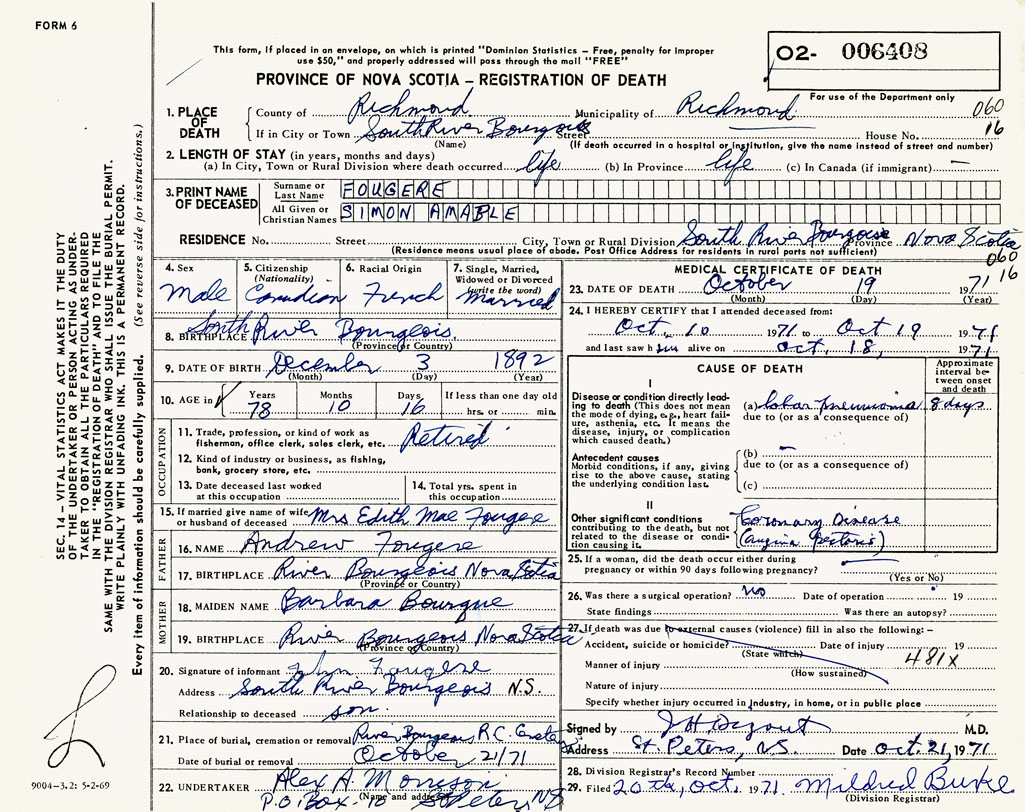 FORM 6
This form, if placed in an envelope, on which is printed "Dominion Statistics – Free, penalty for improper
use $50," and properly addressed will pass through the mail "FREE"
O2- 006408
PROVINCE OF NOVA SCOTIA – REGISTRATION OF DEATH
For use of the Department only
1. PLACE OF DEATH County of Richmond Municipality of Richmond 060
If in City or Town South River Bourgeois Street House No. 16
(Name) (If death occurred in a hospital or institution, give the name instead of street and number)
2. LENGTH OF STAY (in years, months and days)
(a) In City, Town or Rural Division where death occurred life (b) In Province life (c) In Canada (if immigrant) —
3. PRINT NAME OF DECEASED Surname or Last Name FOUGERE
All Given or Christian Names SIMON AMABLE
RESIDENCE No. Street City, Town or Rural Division South River Bourgeois Province Nova Scotia
(Residence means usual place of abode. Post Office Address for residents in rural parts not sufficient) 060
16
4. Sex Male
5. Citizenship (Nationality) Canadian
6. Racial Origin French
7. Single, Married, Widowed or Divorced (write the word) Married
8. BIRTHPLACE South River Bourgeois.
(Province or Country)
9. DATE OF BIRTH December 3 1892
(Month) (Day) (Year)
10. AGE in Years Months Days If less than one day old
78 10 16 hrs. or min.
OCCUPATION
11. Trade, profession, or kind of work as fisherman, office clerk, sales clerk, etc. Retired
12. Kind of industry or business, as fishing, bank, grocery store, etc.
13. Date deceased last worked at this occupation
14. Total yrs. spent in this occupation
15. If married give name of wife or husband of deceased Mrs Edith Mae Fougere
FATHER
16. NAME Andrew Fougere
17. BIRTHPLACE River Bourgeois Nova Scotia
(Province or Country)
MOTHER
18. MAIDEN NAME Barbara Bourque
19. BIRTHPLACE River Bourgeois Nova Scotia
(Province or Country)
20. Signature of informant John Fougere
Address South River Bourgeois N.S.
Relationship to deceased son.
21. Place of burial, cremation or removal River Bourgeois R.C.
Date of burial or removal October 21/71
22. UNDERTAKER Alex A. Morrison
(Name and address)
P.O. Box St Peters, NS
MEDICAL CERTIFICATE OF DEATH
23. DATE OF DEATH October 19 1971
(Month) (Day) (Year)
24. I HEREBY CERTIFY that I attended deceased from:
Oct. 10 1971 to Oct 19 1971
and last saw him alive on Oct. 18, 1971
CAUSE OF DEATH
Approximate interval between onset and death
I
Disease or condition directly leading to death (This does not mean the mode of dying, e.g., heart failure, asthenia, etc. It means the disease, injury, or complication which caused death.)
(a) lobar pneumonia 8 days
due to (or as a consequence of)
Antecedent causes
Morbid conditions, if any, giving rise to the above cause, stating the underlying condition last.
(b) —
due to (or as a consequence of)
(c)
II
Other significant conditions contributing to the death, but not related to the disease or condition causing it.
Coronary Disease
(angina pectoris)
25. If a woman, did the death occur either during
pregnancy or within 90 days following pregnancy?
(Yes or No)
26. Was there a surgical operation? No Date of operation 19
State findings Was there an autopsy?
27. If death was due to external causes (violence) fill in also the following:–
Accident, suicide or homicide? Date of injury 19
(State which) 481X
Manner of injury
(How sustained)
Nature of injury
Specify whether injury occurred in industry, in home, or in public place
Signed by M.D.
Address St. Peters, N.S. Date Oct. 21, 1971
28. Division Registrar's Record Number
29. Filed 20 th, Oct. 1971. Mildred Burke
(Division Registrar)
SEC. 14 – VITAL STATISTICS ACT MAKES IT THE DUTY
OF THE UNDERTAKER OR PERSON ACTING AS UNDER-
TAKER TO OBTAIN ALL THE PARTICULARS REQUIRED
IN THE "REGISTRATION OF DEATH" AND TO FILE THE
SAME WITH THE DIVISION REGISTRAR WHO SHALL ISSUE THE BURIAL PERMIT.
WRITE PLAINLY WITH UNFADING INK. THIS IS A PERMANENT RECORD.
Every item of information should be carefully supplied. (See reverse side for instructions.)
9004–3.2: 5-2-69